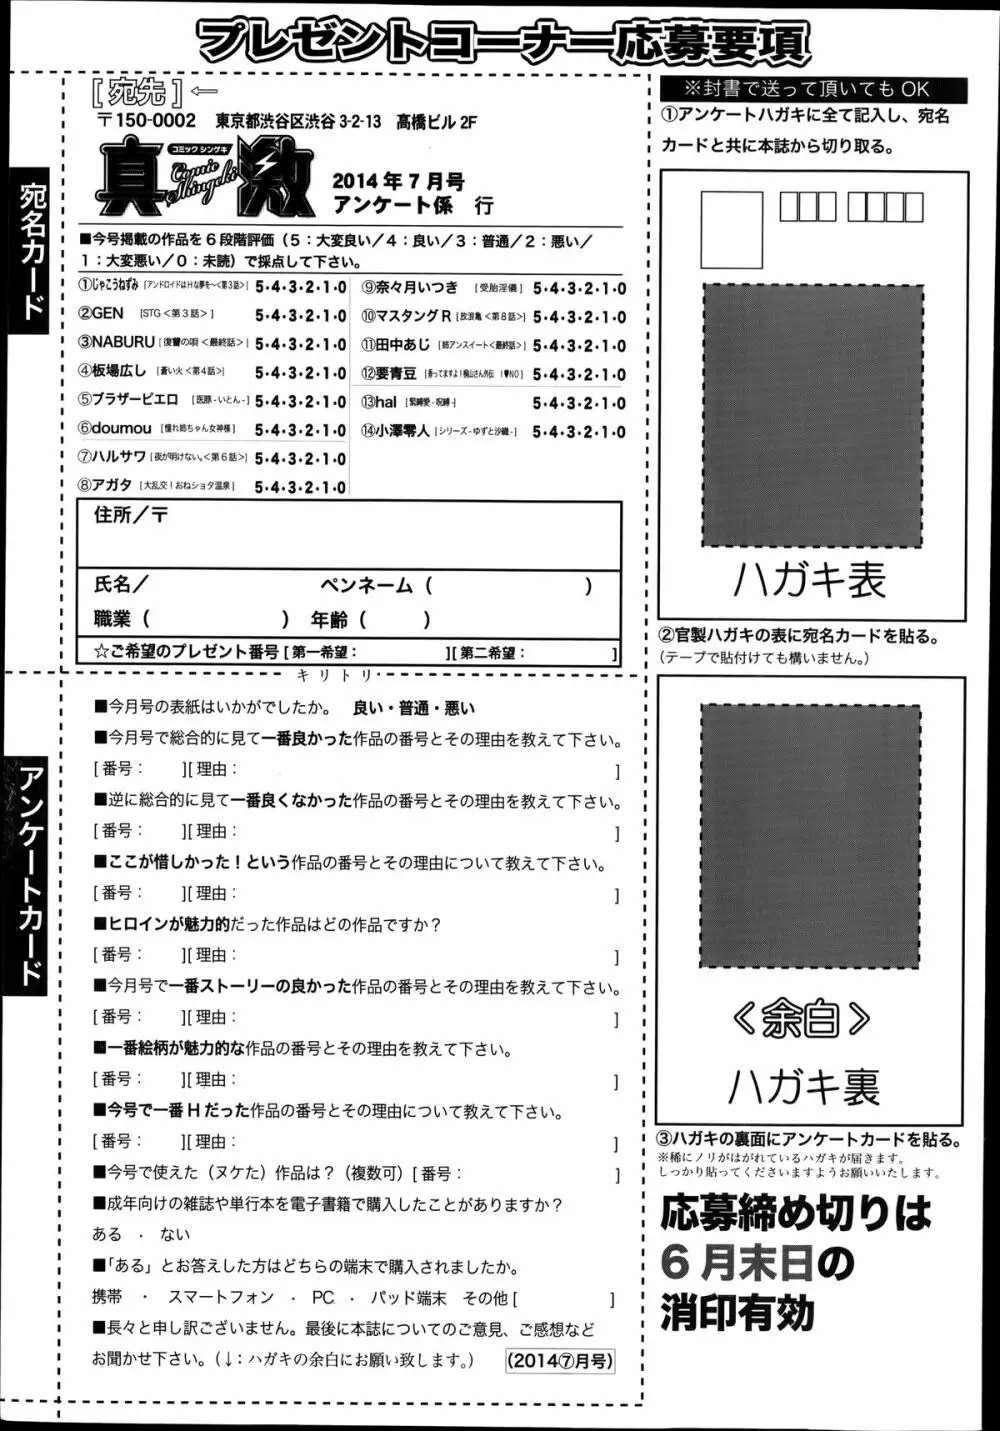 プレゼントコーナー応募要項
[宛先]←
〒150-0002 東京都渋谷区渋谷 3-2-13 高橋ビル 2F
コミック シンゲキ
真激
Comic Shingeki
2014 年 7 月号
アンケート係 行
■今号掲載の作品を 6 段階評価（5：大変良い／4：良い／3：普通／2：悪い／
1：大変悪い／0：未読）で採点して下さい。
①じゃこうねずみ [アンドロイドはHな夢を〜<第3話>] 5・4・3・2・1・0
②GEN [STG <第3話>] 5・4・3・2・1・0
③NABURU [復讐の唄 <最終話>] 5・4・3・2・1・0
④板場広し [蒼い火 <第4話>] 5・4・3・2・1・0
⑤ブラザーピエロ [医豚 - いとん -] 5・4・3・2・1・0
⑥doumou [憧れ姉ちゃん女神様] 5・4・3・2・1・0
⑦ハルサワ [夜が明けない。<第6話>] 5・4・3・2・1・0
⑧アガタ [大乱交！おねショタ温泉] 5・4・3・2・1・0
⑨奈々月いつき [受胎淫儀] 5・4・3・2・1・0
⑩マスタング R [放浪亀 <第8話>] 5・4・3・2・1・0
⑪田中あじ [姉アンスイート<最終話>] 5・4・3・2・1・0
⑫要青豆 [香ってますよ！桐山さん外伝 I♥NO] 5・4・3・2・1・0
⑬hal [緊縛愛 - 呪縛 -] 5・4・3・2・1・0
⑭小澤零人 [シリーズ - ゆずと沙織 -] 5・4・3・2・1・0
住所／〒
氏名／ ペンネーム（ ）
職業（ ） 年齢（ ）
☆ご希望のプレゼント番号 [ 第一希望： ][ 第二希望： ]
キリトリ
宛名カード
アンケートカード
■今月号の表紙はいかがでしたか。 良い・普通・悪い
■今月号で総合的に見て一番良かった作品の番号とその理由を教えて下さい。
[ 番号： ][ 理由： ]
■逆に総合的に見て一番良くなかった作品の番号とその理由を教えて下さい。
[ 番号： ][ 理由： ]
■ここが惜しかった！という作品の番号とその理由について教えて下さい。
[ 番号： ][ 理由： ]
■ヒロインが魅力的だった作品はどの作品ですか？
[ 番号： ][ 理由： ]
■今月号で一番ストーリーの良かった作品の番号とその理由を教えて下さい。
[ 番号： ][ 理由： ]
■一番絵柄が魅力的な作品の番号とその理由を教えて下さい。
[ 番号： ][ 理由： ]
■今号で一番 H だった作品の番号とその理由について教えて下さい。
[ 番号： ][ 理由： ]
■今号で使えた（ヌケた）作品は？（複数可）[ 番号： ]
■成年向けの雑誌や単行本を電子書籍で購入したことがありますか？
ある ・ ない
■「ある」とお答えした方はどちらの端末で購入されましたか。
携帯 ・ スマートフォン ・ PC ・ パッド端末 その他 [ ]
■長々と申し訳ございません。最後に本誌についてのご意見、ご感想など
お聞かせ下さい。（↓：ハガキの余白にお願い致します。） (2014⑦月号)
※封書で送って頂いても OK
①アンケートハガキに全て記入し、宛名
カードと共に本誌から切り取る。
ハガキ表
②官製ハガキの表に宛名カードを貼る。
（テープで貼付けても構いません。）
＜余白＞
ハガキ裏
③ハガキの裏面にアンケートカードを貼る。
※稀にノリがはがれているハガキが届きます。
しっかり貼ってくださいますようお願いいたします。
応募締め切りは
6 月末日の
消印有効